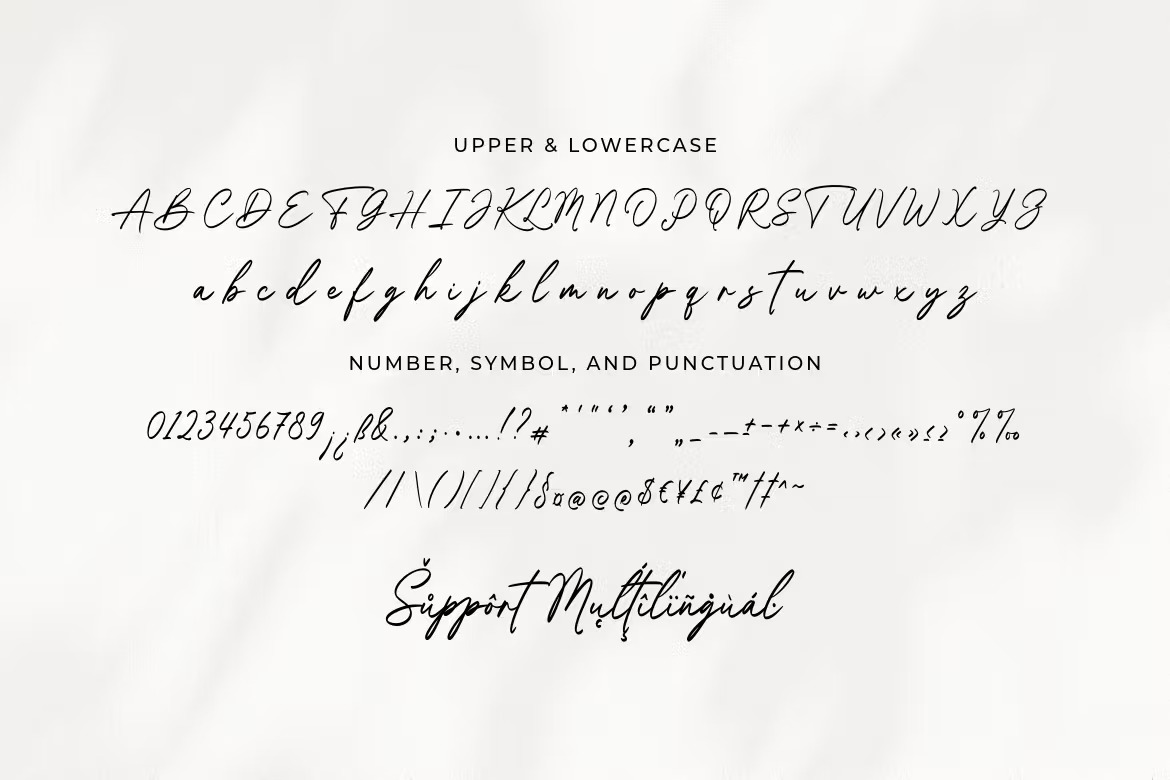 UPPER & LOWERCASE
A B C D E F G H I J K L M N O P Q R S T U V W X Y Z
a b c d e f g h i j k l m n o p q r s t u v w x y z
NUMBER, SYMBOL, AND PUNCTUATION
0123456789¡¿ß&.,:;·•…!?#*'"‘’‚“”„_-–—±−+×÷=‹›<>«»≤≥°%‰
/⁄\()[]{}§¤@©®$€¥£¢™†‡^~
Šůppôrt Mųļţílïñġùáŀ